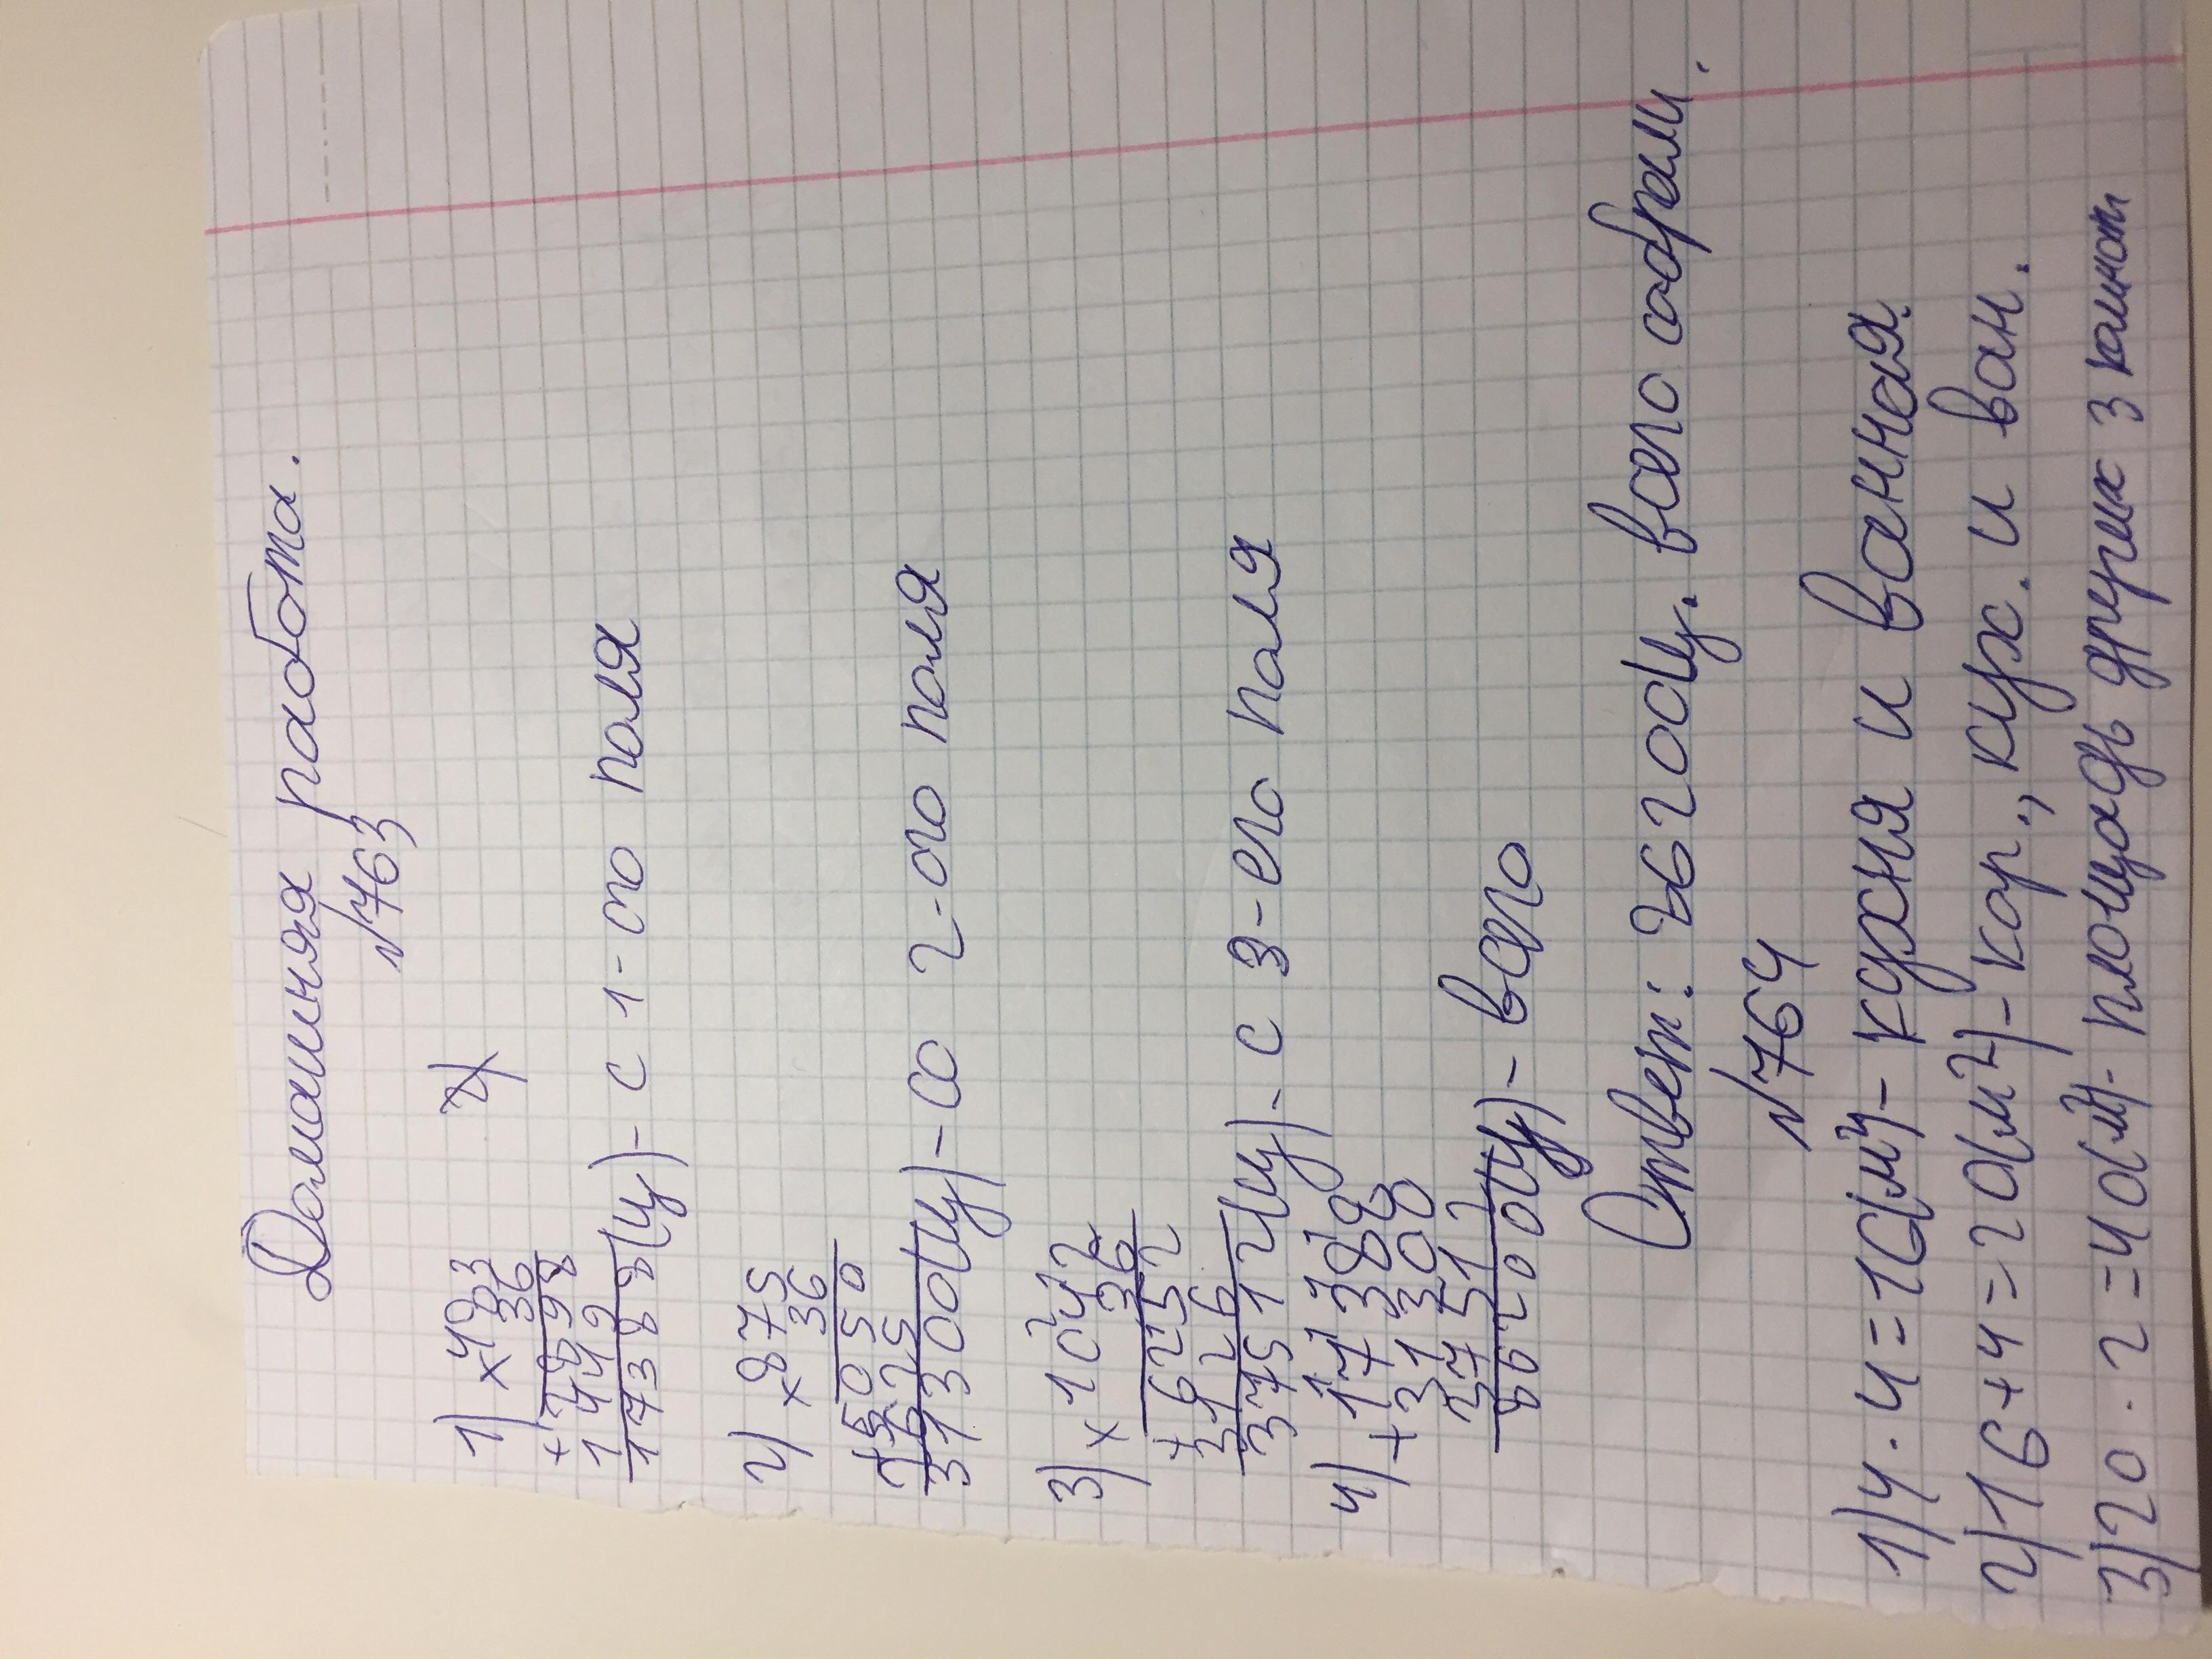 Домашняя работа.
№763
1) × 483 2)
36
+ 2898
1449
17388(ц) - с 1-ого поля
2) × 875
36
+ 5050
2625
31300(ц) - со 2-ого поля
3) × 1042
36
+ 6252
3126
37512(ц) - с 3-его поля
4) + 17388
31300
37512
86200(ц) - всего
Ответ: 86200ц. всего собрали.
№764
1) 4 · 4 = 16(м²) - кухня и ванная.
2) 16 + 4 = 20(м²) - кор., кух. и ван.
3) 20 · 2 = 40(м²) - площадь других 3 комнат